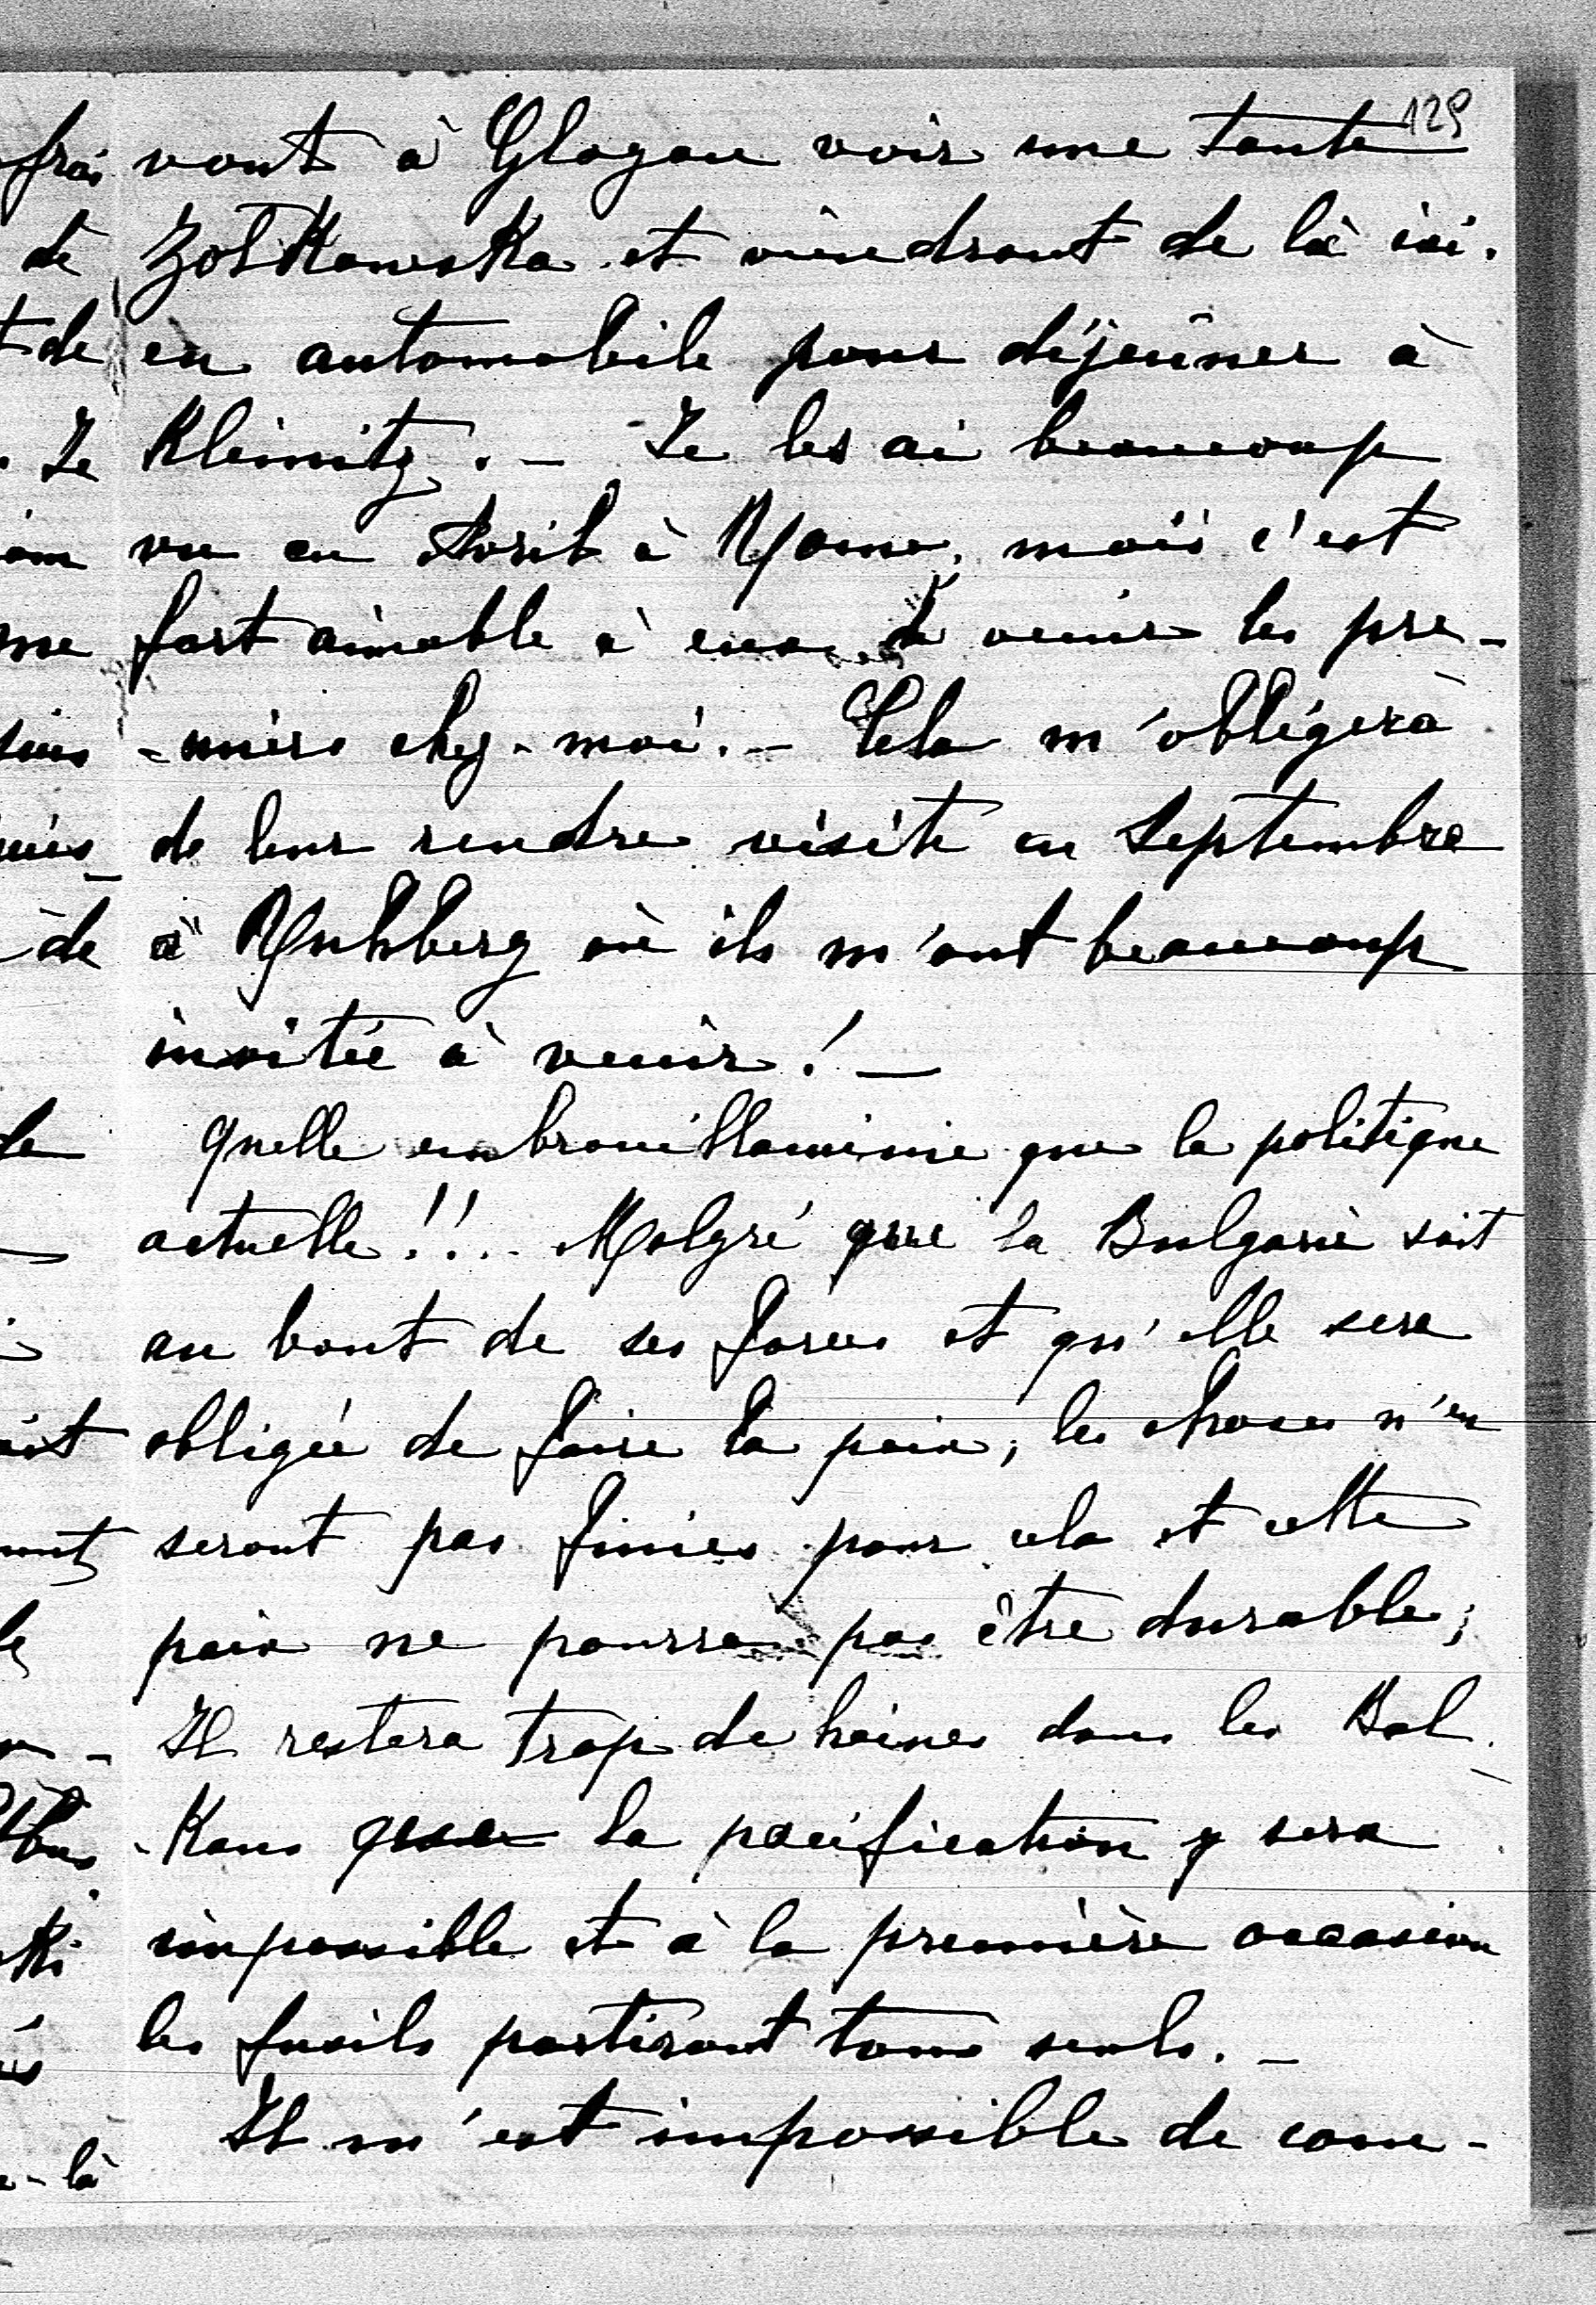 129
vont à Glogau voir une tante
de Zoltkowska et viendront de là ici
en automobile pour déjeûner à
Kleinitz. — Je les ai beaucoup
vu en Avril à Rome, mais c'est
fort aimable à eux de venir les pre-
-miers chez-moi. — Cela m'obligera
de leur rendre visite en Septembre
à Ruhberg où ils m'ont beaucoup
invitée à venir! —
Quelle embrouillaminie que la politique
actuelle!!.. Malgré que la Bulgarie soit
au bout de ses forces et qu'elle sera
obligée de faire la paix, les choses n'en
seront pas finies pour cela et cette
paix ne pourra pas être durable;
Il restera trop de haines dans les Bal-
-Kans que la pacification y sera
impossible et à la première occasion
les fusils partiront tous seuls. —
Il m'est impossible de com-